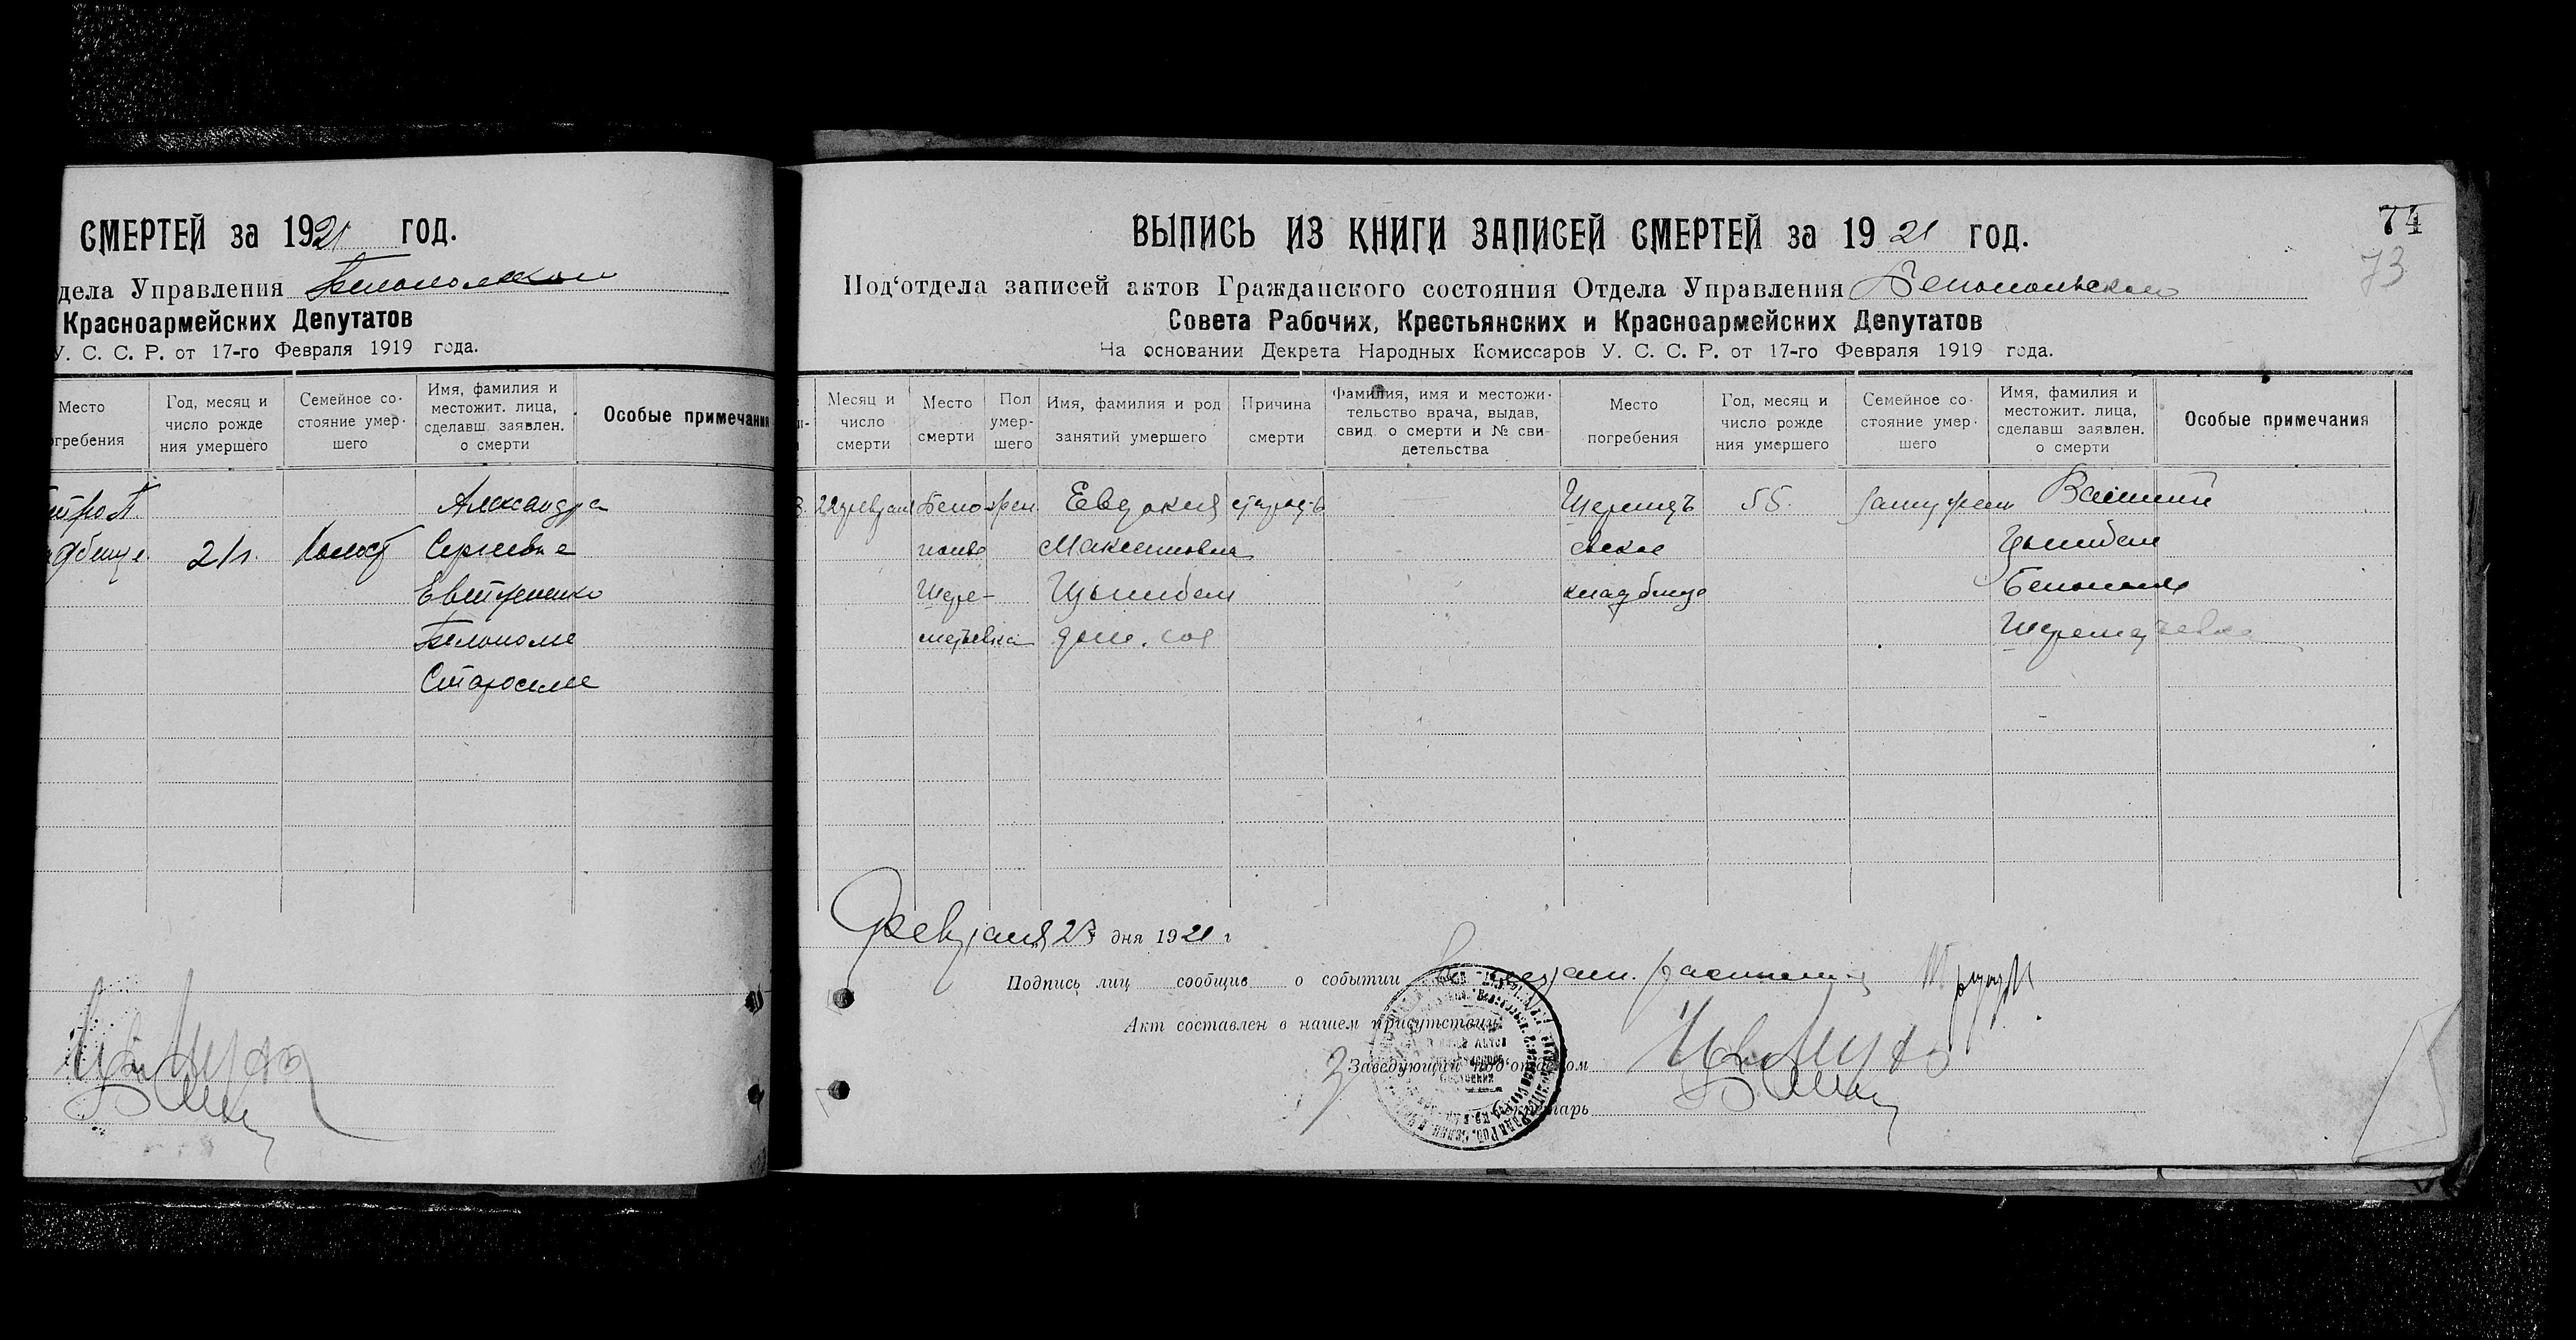 СМЕРТЕЙ за 1921 год.
дела Управления
Красноармейских Депутатов
У. С. С. Р. от 17-го Февраля 1919 года.
Место
погребения
Год, месяц и
число рожде
ния умершего
Семейное со-
стояние умер-
шего
Имя, фамилия и
местожит. лица,
сделавш заявлен.
о смерти
Особые примечания
Александра
21 л. Холост Сергеевна
Белополье
Староселье
74
73
ВЫПИСЬ ИЗ КНИГИ ЗАПИСЕЙ СМЕРТЕЙ за 1921 год.
Под'отдела записей актов Гражданского состояния Отдела Управления Белопольского
Совета Рабочих, Крестьянских и Красноармейских Депутатов
На основании Декрета Народных Комиссаров У. С. С. Р. от 17-го Февраля 1919 года.
Месяц и
число
смерти
Место
смерти
Пол
умер-
шего
Имя, фамилия и род
занятий умершего
Причина
смерти
Фамилия, имя и местожи-
тельство врача, выдав,
свид. о смерти и № сви-
детельства
Место
погребения
Год, месяц и
число рожде
ния умершего
Семейное со-
стояние умер-
шего
Имя, фамилия и
местожит. лица,
сделавш заявлен.
о смерти
Особые примечания
22 февраля Бело- жен Евдокия старость Шереметь 55. замужем Василий
полье Максимовна евское
Шере- кладбище Белополье
метьевка дом. хоз Шереметьевка
Февраля 23 дня 1921 г
Подпись лиц сообщив о событии
Акт составлен в нашем присутствии:
Заведующий под'отделом
Секретарь